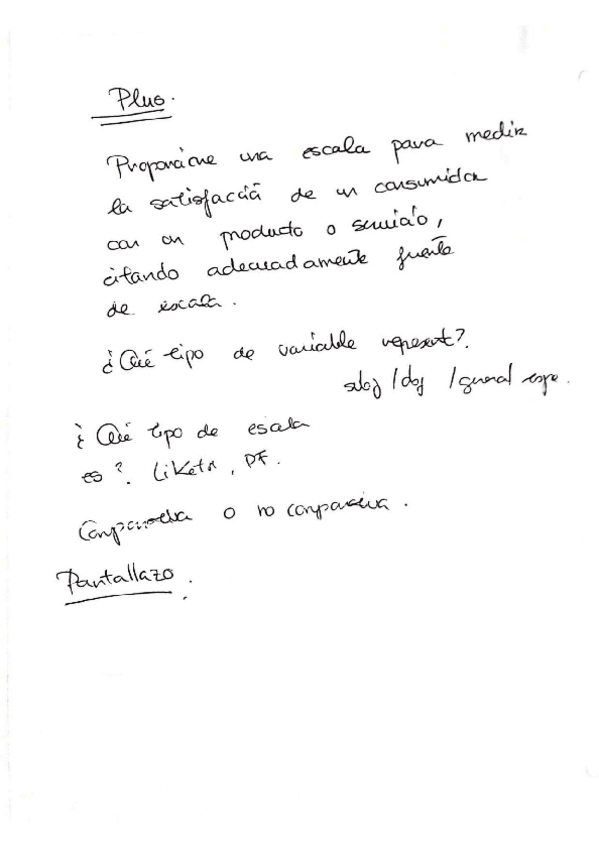 Plus.
Proponerme una escala para medir
la satisfacción de un consumidor
con un producto o servicio,
citando adecuadamente fuente
de escala.
¿Qué tipo de variable represent?.
subj / obj / general espe.
¿Qué tipo de escala
es?. Likert, DF.
Comparativa o no comparativa.
Pantallazo.